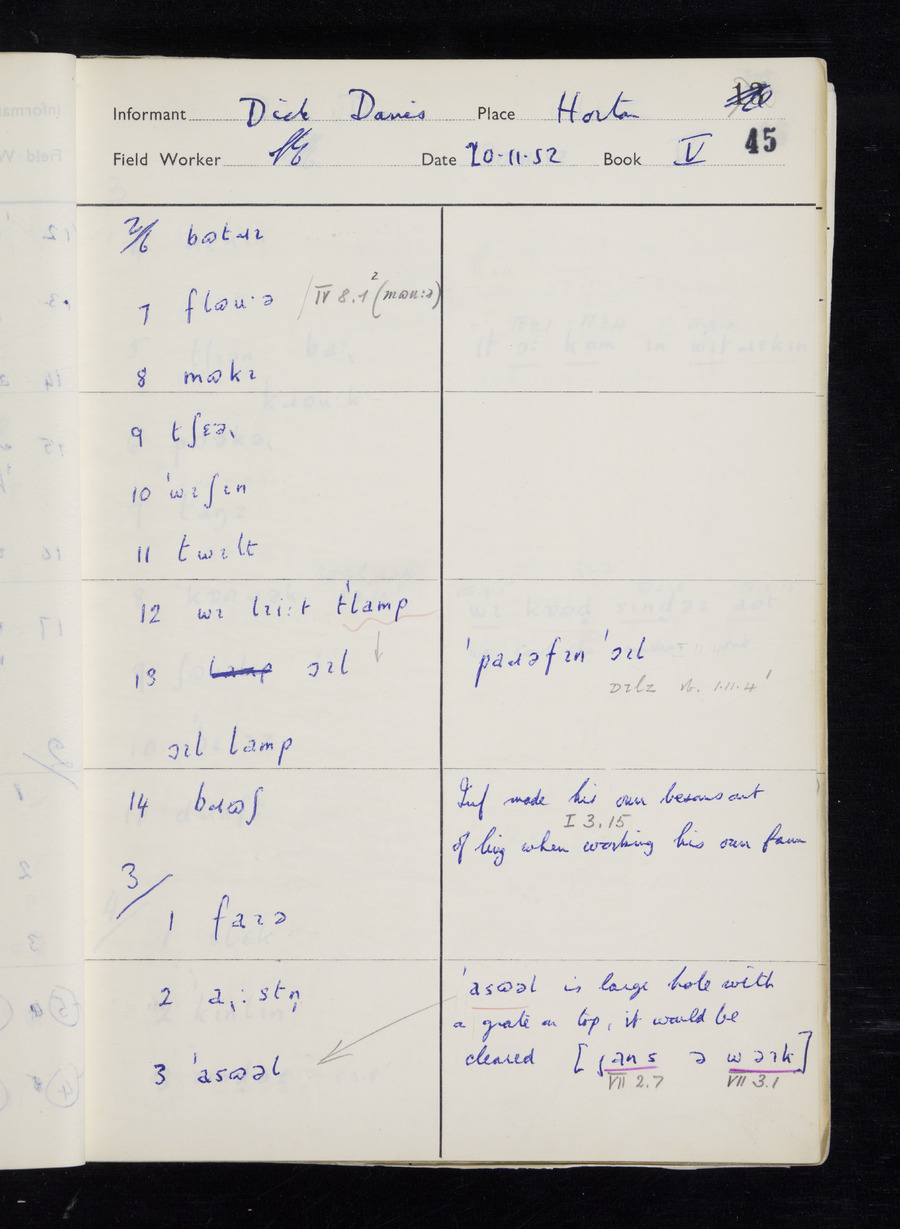 Informant Dick Davis Place Horton
45
Field Worker Date 20·11·52 Book V
2/6 bɷtəɹɪ
7 flɷu·ə / IV 8.1² (mɷu:ə)
8 mɷkɪ
9 tʃɛə˞
10 ˈwɪʃɪn
11 twɪlt
12 wɪ lɪi:t tˈlamp
13 ɔɪl
ˈpaɹəfɪn ˈɔɪl
ɔɪl lamp
14 bɹɷʃ
Inf made his own besoms out
I 3.15
of ling when working his own farm
3/
1 faɪə
2 a˞:stn̩
3 ˈasɷəl
ˈasɷəl is large hole with
a grate on top, it would be
cleared [ʃans ə wəɪk]
VII 2.7 VII 3.1